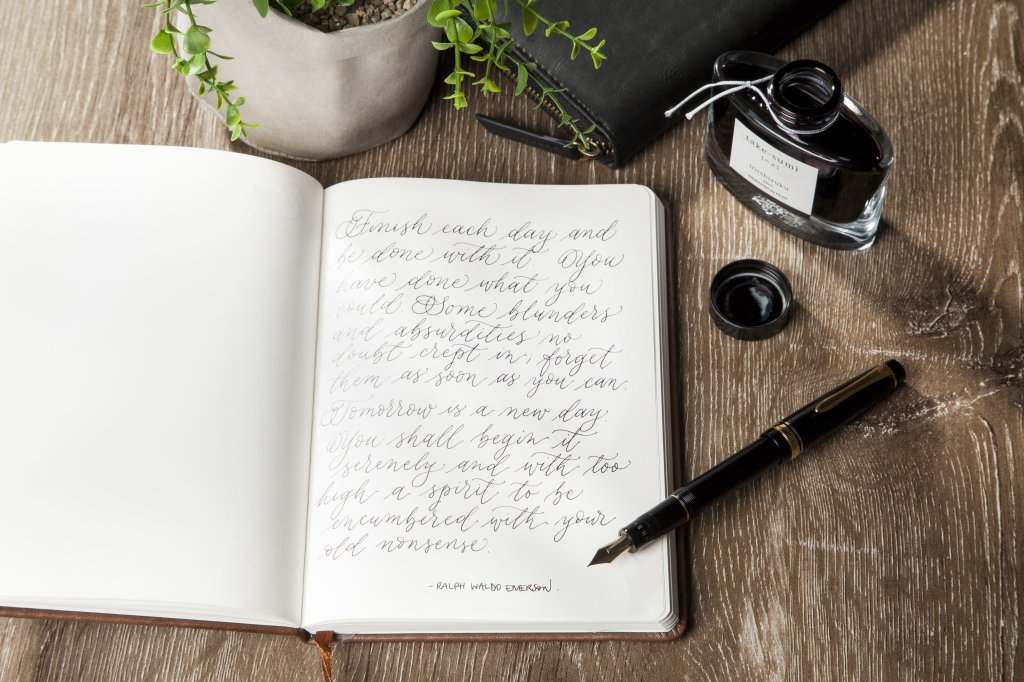 Finish each day and
be done with it You
have done what you
could. Some blunders
and absurdities no
doubt crept in, forget
them as soon as you can.
Tomorrow is a new day.
You shall begin it
serenely and with too
high a spirit to be
encumbered with your
old nonsense.
- RALPH WALDO EMERSON.
take-sumi
iroshizuku